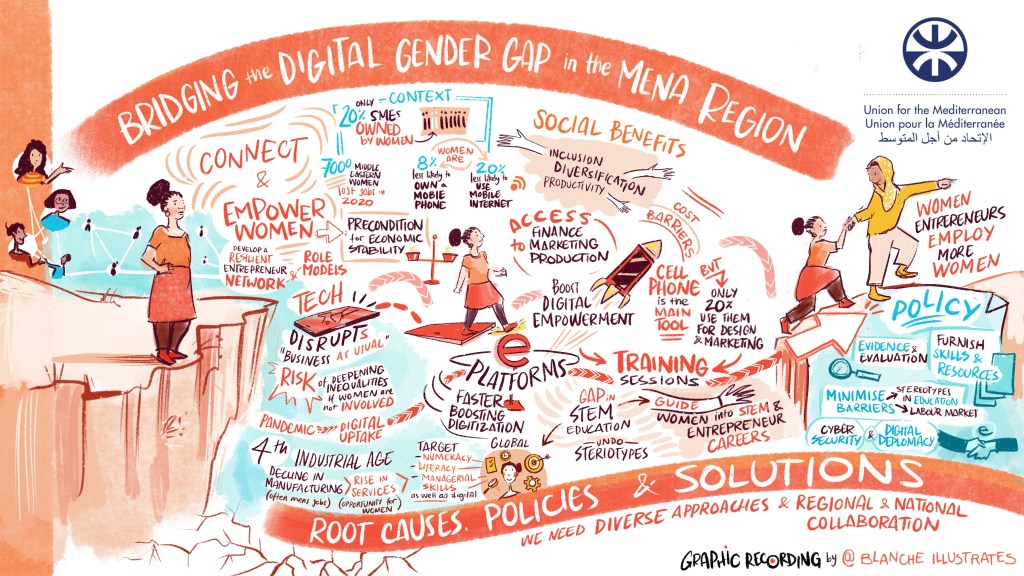 BRIDGING the DIGITAL GENDER GAP in the MENA REGION
Union for the Mediterranean
Union pour la Méditerranée
الإتحاد من أجل المتوسط
CONNECT
&
EMPOWER
WOMEN
DEVELOP A
RESILIENT
ENTREPRENEUR
NETWORK &
ROLE
MODELS
CONTEXT
ONLY
20% SMES
OWNED
BY WOMEN
7000 MIDDLE
EASTERN
WOMEN
lost jobs in
2020
WOMEN
ARE
8%
less likely to
OWN A
MOBIE
PHONE
20%
less likely to
USE
MOBILE
INTERNET
PRECONDITION
for ECONOMIC
STABILITY
SOCIAL BENEFITS
INCLUSION
DIVERSIFICATION
PRODUCTIVITY
ACCESS
to
FINANCE
MARKETING
PRODUCTION
COST
BARRIERS
BOOST
DIGITAL
EMPOWERMENT
CELL
PHONE
is the
MAIN
TOOL
BUT
ONLY
20%
USE THEM
FOR DESIGN
& MARKETING
WOMEN
ENTREPRENEURS
EMPLOY
MORE
WOMEN
TECH
DISRUPTS
"BUSINESS AS USUAL"
RISK of DEEPENING
INEQUALITIES
IF WOMEN ARE
not INVOLVED
PANDEMIC
DIGITAL
UPTAKE
e
PLATFORMS
FASTER
BOOSTING
DIGITIZATION
TRAINING
SESSIONS
GAP in
STEM
EDUCATION
UNDO
STERIOTYPES
GUIDE
WOMEN into STEM &
ENTREPRENEUR
CAREERS
POLICY
EVIDENCE &
EVALUATION
FURNISH
SKILLS &
RESOURCES
MINIMISE
BARRIERS
STEREOTYPES
IN EDUCATION
LABOUR MARKET
CYBER
SECURITY
&
DIGITAL
DEPLOMACY
4th INDUSTRIAL AGE
DECLINE IN
MANUFACTURING
(often mens jobs)
RISE IN
SERVICES
(OPPORTUNITY for
WOMEN)
TARGET
NUMERACY
LITERACY
MANAGERIAL
SKILLS
as well as digital
GLOBAL
ROOT CAUSES. POLICIES & SOLUTIONS
WE NEED DIVERSE APPROACHES & REGIONAL & NATIONAL
COLLABORATION
GRAPHIC RECORDING by @ BLANCHE ILLUSTRATES